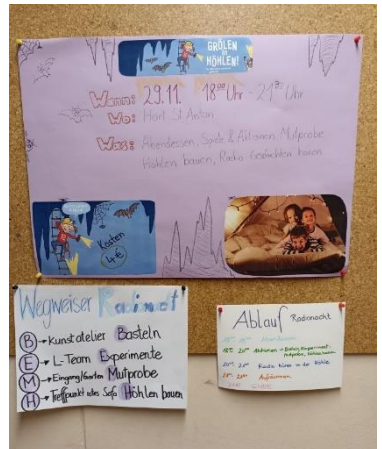 GRÖLEN
in
HÖHLEN!
Wann: 29.11. 18⁰⁰ Uhr - 21³⁰ Uhr
Wo: Hort St. Anton
Was: Abendessen, Spiele & Aktionen, Mutprobe
Höhlen bauen, Radio Geschichten hören
Kosten
4€
Wegweiser Radionacht
B → Kunstatelier Basteln
E → L-Team Experimente
M → Eingang/Garten Mutprobe
H → Treffpunkt altes Sofa Höhlen bauen
Ablauf Radionacht
Abendessen
Radio hören in der Höhle
Aufräumen